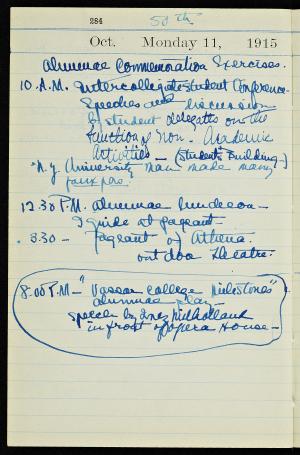 284 50th
Oct. Monday 11, 1915
Alumnae Commemoration Exercises.
10 A.M. Intercollegiate Student Conference-
Speeches and discussion
by student delegates on the
Function of Non-Academic
Activities - (Students Building-)
"N.Y. University man make many
faux pas.
12.30 P.M. Alumnae luncheon-
I guide at pageant-
3.30 - Pageant of Athena.
out doa theatre.
8.00 P.M - "Vassar College Milestones"
alumnae play-
speech by Inez Milholland
in front of Opera House-